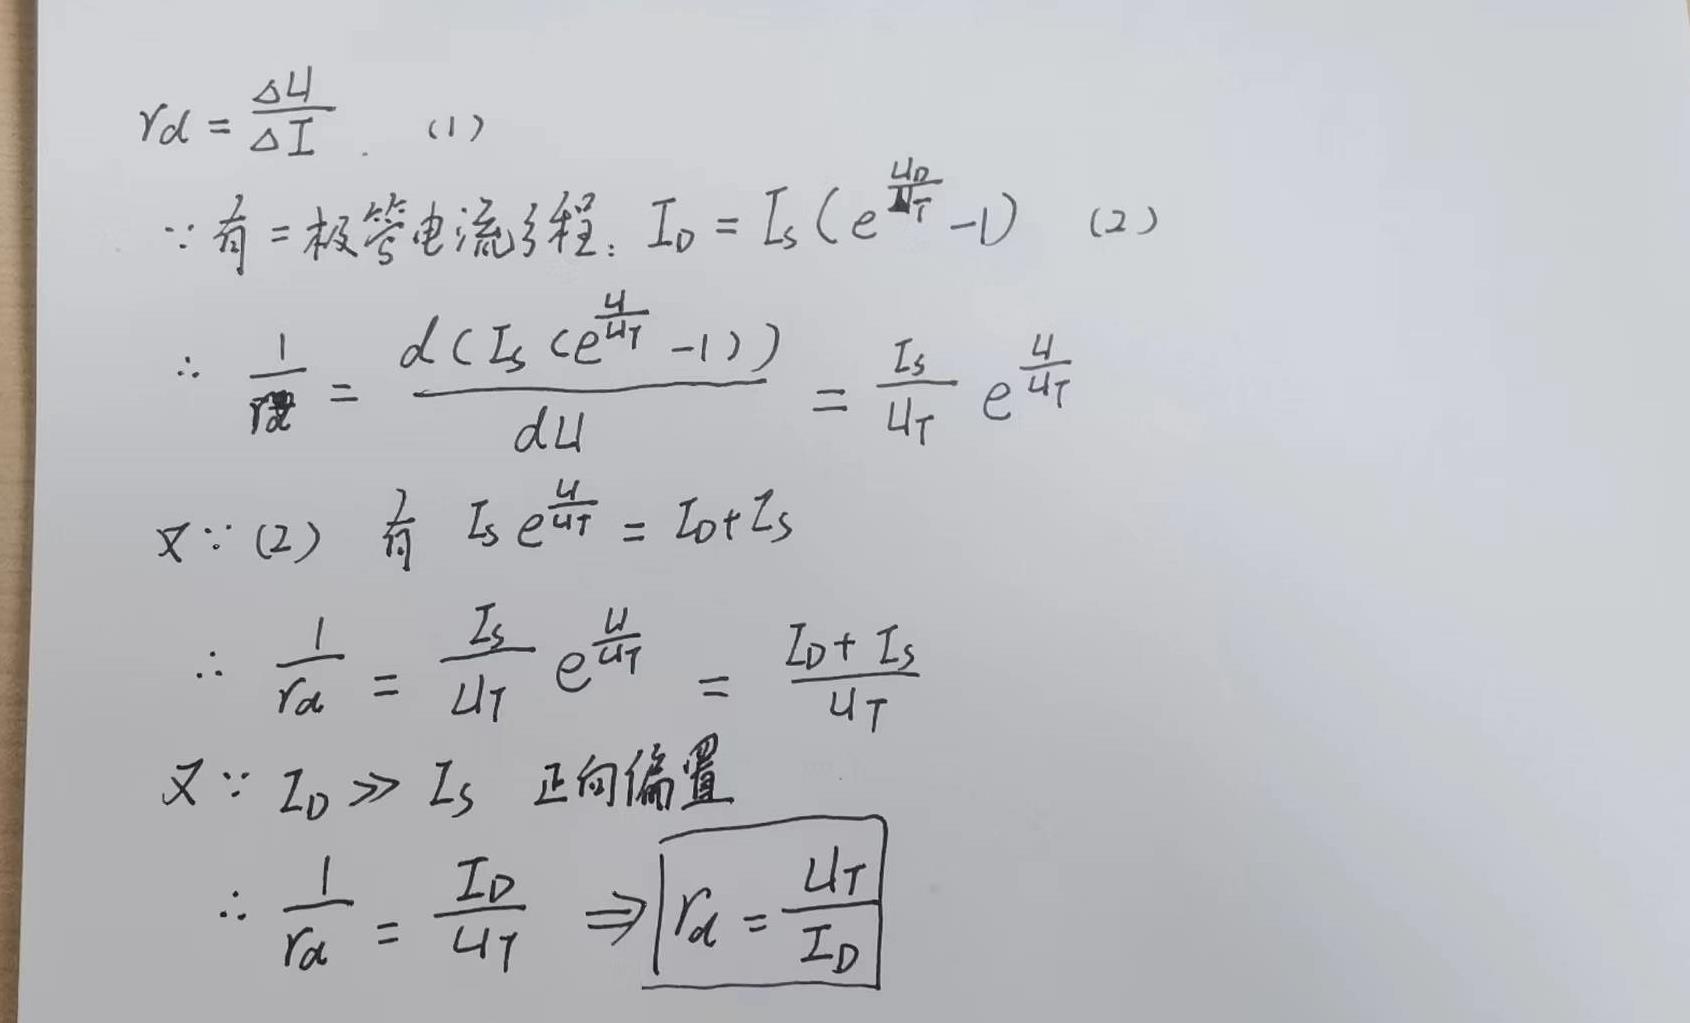 rd = ΔU/ΔI . (1)
∵ 有二极管电流方程: I_D = I_S (e^(U_D/U_T) -1) (2)
∴ 1/rd = d(I_S (e^(U/U_T) -1))/dU = I_S/U_T e^(U/U_T)
又∵(2) 有 I_S e^(U/U_T) = I_D+I_S
∴ 1/rd = I_S/U_T e^(U/U_T) = (I_D + I_S)/U_T
又∵ I_D ≫ I_S 正向偏置
∴ 1/rd = I_D/U_T ⇒ rd = U_T/I_D